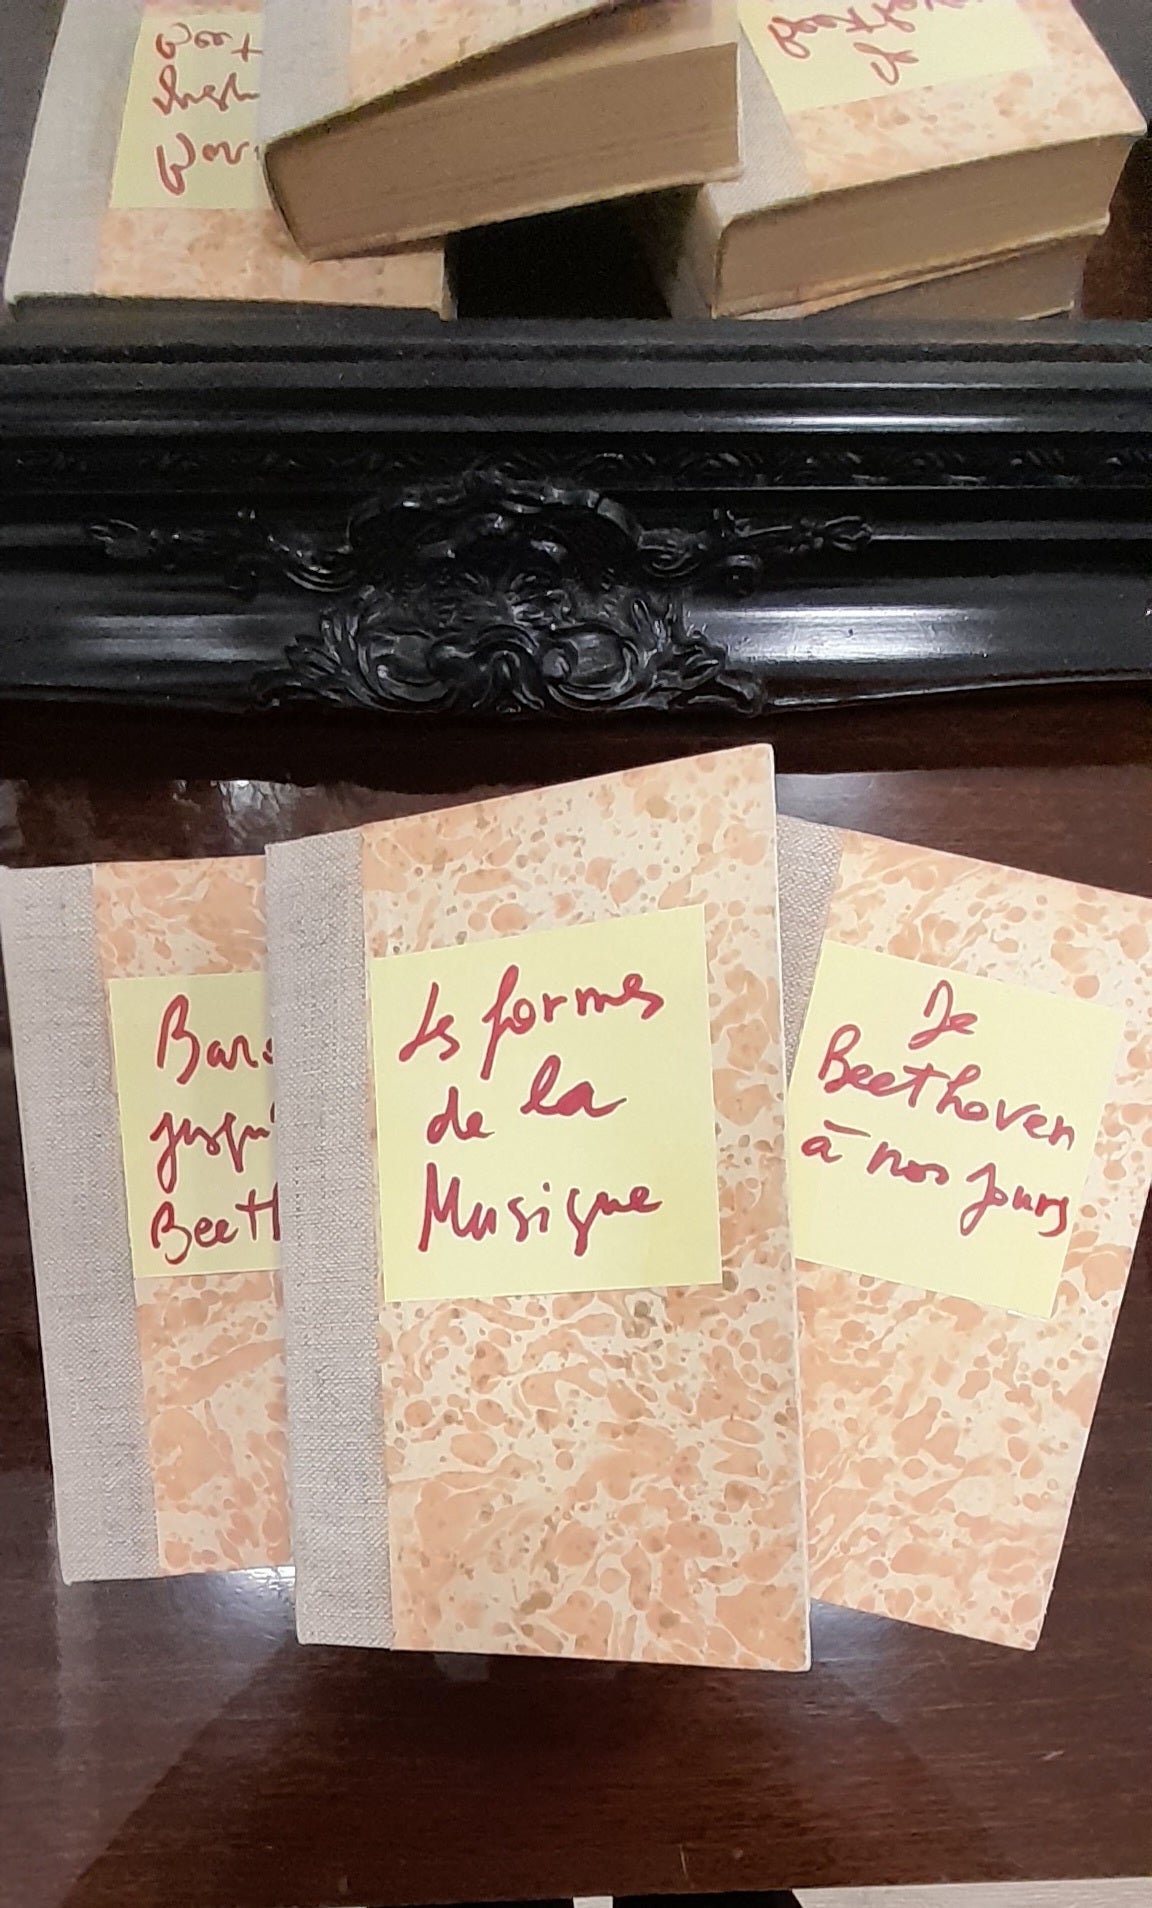 Baro
jusqu'
Beeth
Les formes
de la
Musique
De
Beethoven
à nos jours